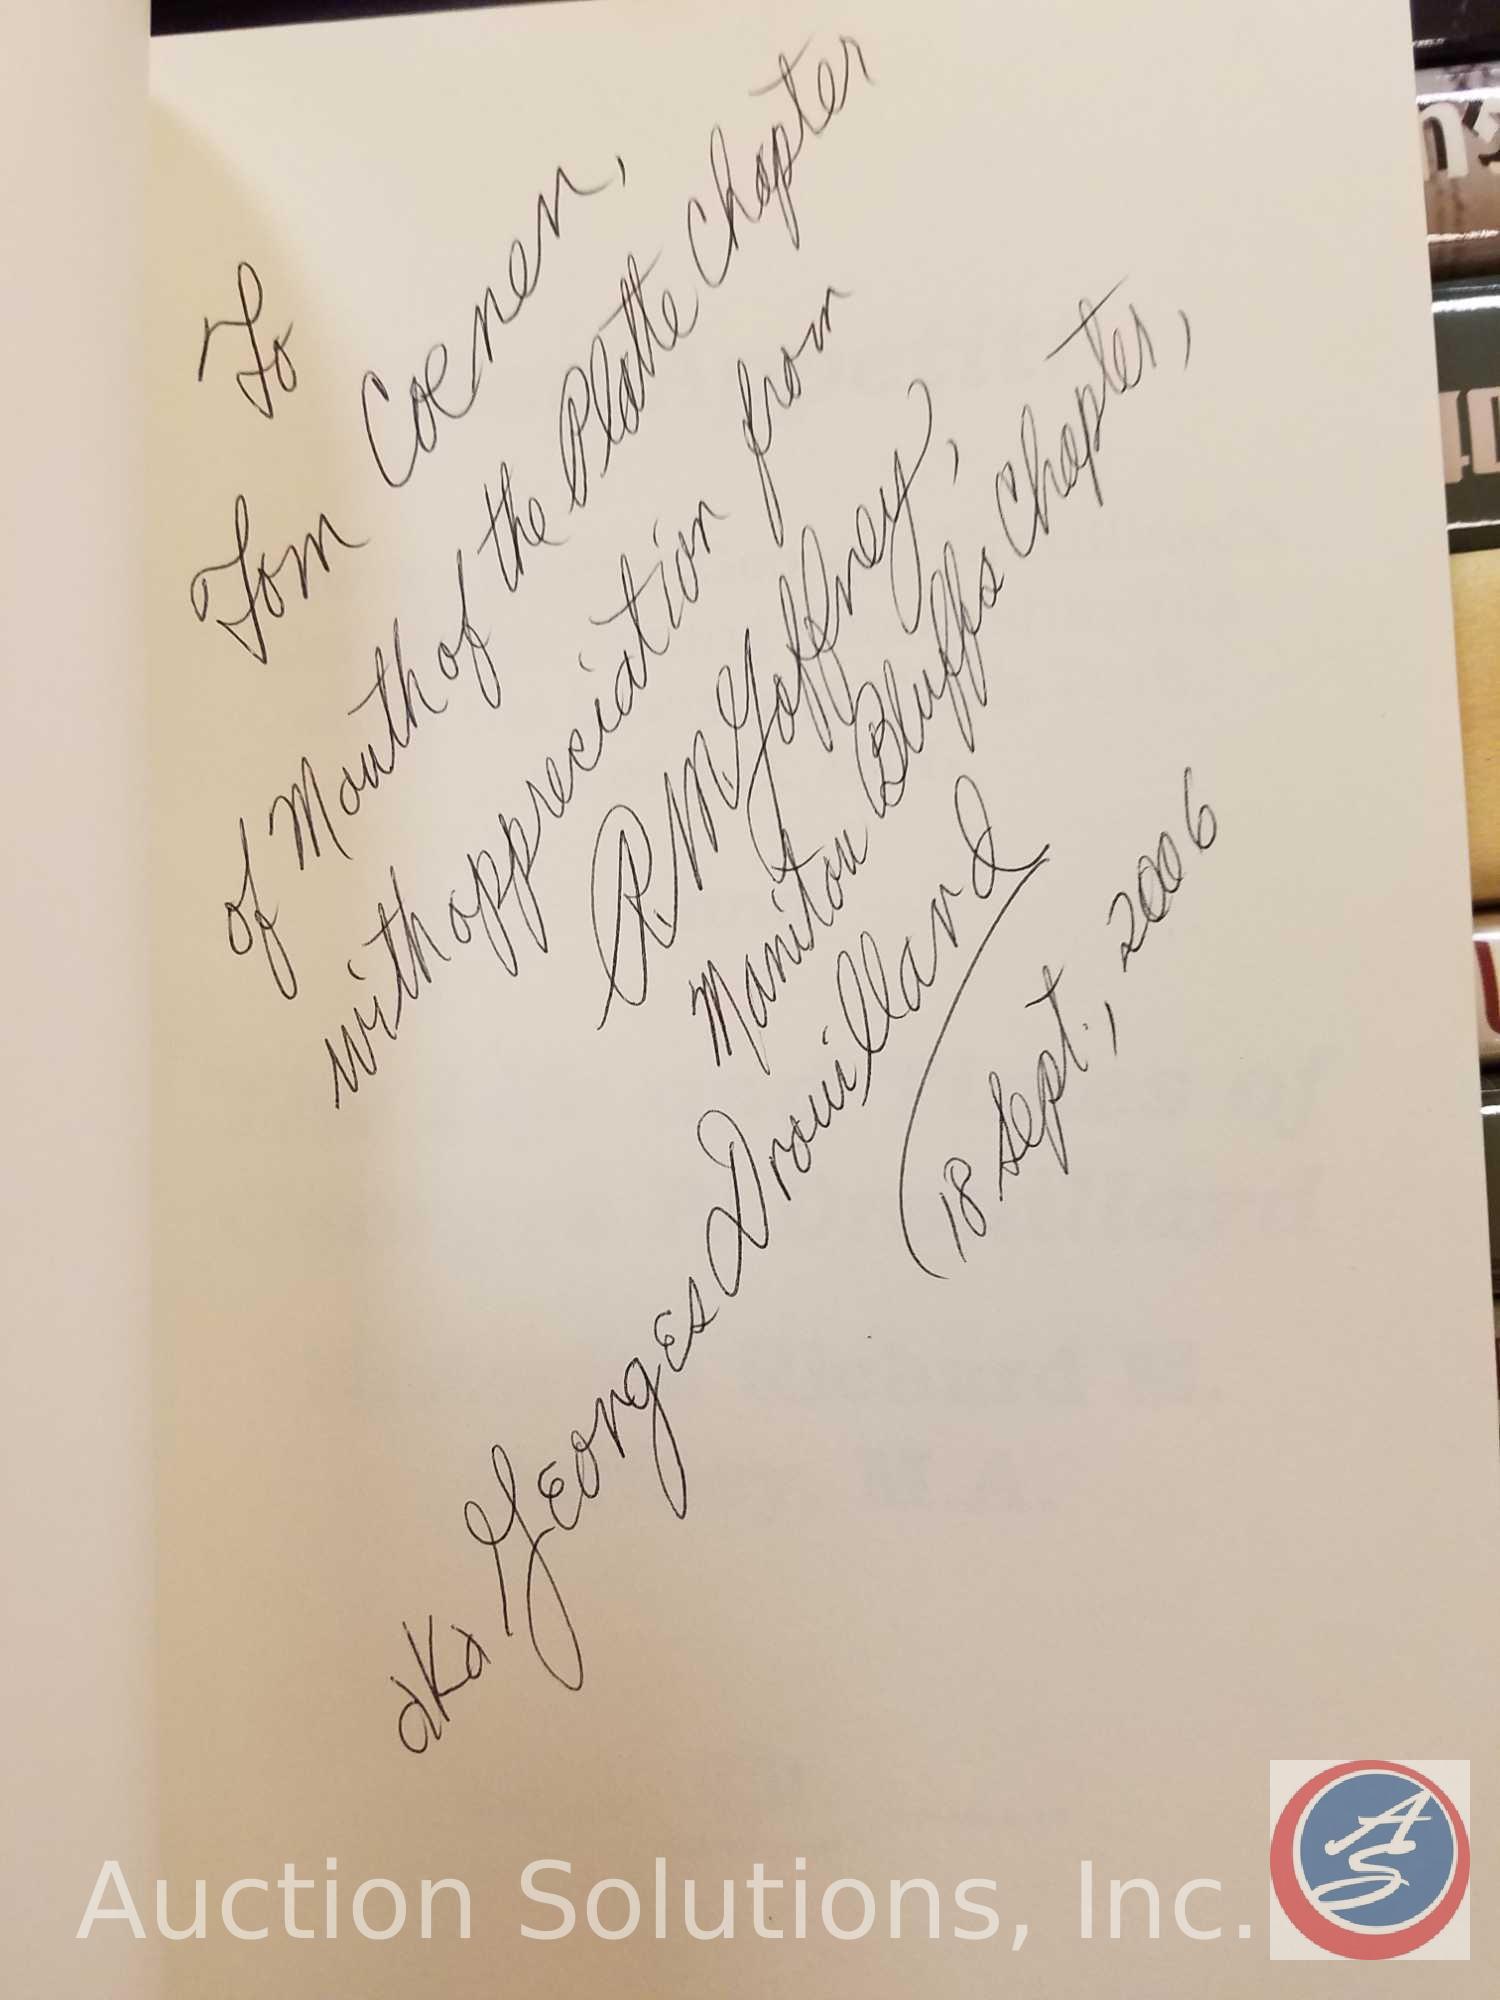 To
Tom Coenen,
of Mouth of the Platte Chapter
with appreciation from
RMGaffney,
Manitou Bluffs Chapter,
aka Georges Drouillard
18 Sept., 2006
Auction Solutions, Inc.
AS